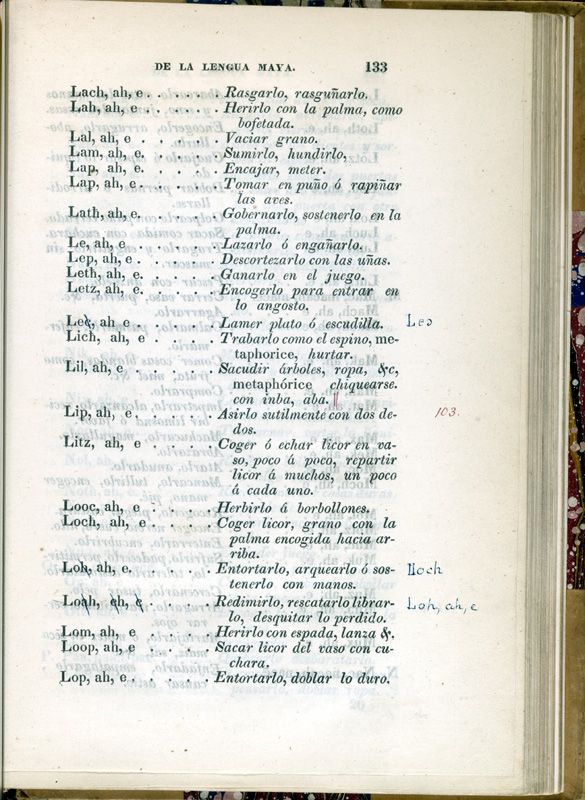 DE LA LENGUA MAYA. 133
Lach, ah, e . . . . . . Rasgarlo, rasguñarlo.
Lah, ah, e . . . . . . Herirlo con la palma, como
bofetada.
Lal, ah, e . . . . . . Vaciar grano.
Lam, ah, e. . . . . . Sumirlo, hundirlo,
Lap, ah, e. . . . . . Encajar, meter.
Lap, ah, e . . . . . . Tomar en puño ó rapiñar
las aves.
Lath, ah, e. . . . . . Gobernarlo, sostenerlo en la
palma.
Le, ah, e . . . . . . Lazarlo ó engañarlo.
Lep, ah, e . . . . . . Descortezarlo con las uñas.
Leth, ah, e. . . . . . Ganarlo en el juego.
Letz, ah, e . . . . . . Encogerlo para entrar en
lo angosto.
Le, ah, e . . . . . . Lamer plato ó escudilla.
Lich, ah, e . . . . . Trabarlo como el espino, me-
taphorice, hurtar.
Lil, ah, e . . . . . . Sacudir árboles, ropa, &c,
metaphórice chiquearse.
con inba, aba.
Lip, ah, e . . . . . . Asirlo sutilmente con dos de- 103.
dos.
Litz, ah, e . . . . Coger ó echar licor en va-
so, poco á poco, repartir
licor á muchos, un poco
á cada uno.
Looc, ah, e . . . . . Herbirlo á borbollones.
Loch, ah, e . . . . . Coger licor, grano con la
palma encogida hacia ar-
riba.
ah, e. . . . . . Entortarlo, arquearlo ó sos- Hoch
tenerlo con manos.
ah, e . . . . . Redimirlo, rescatarlo librar- Loh, ah, e
lo, desquitar lo perdido.
Lom, ah, e . . . . . Herirlo con espada, lanza &.
Loop, ah, e . . . . . Sacar licor del vaso con cu-
chara.
Lop, ah, e . . . . . . Entortarlo, doblar lo duro.